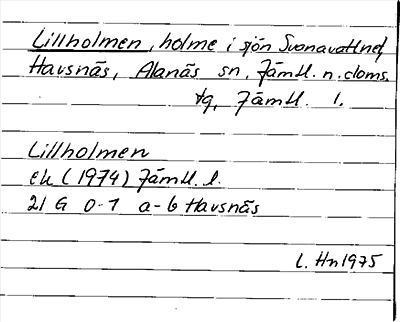 Lillholmen, holme i sjön Svanavattnet,
Havsnäs, Alanäs sn, Jämtl. n. doms.
Jämtl. l.
Lillholmen
ek (1974) Jämtl. l.
21 G 0-1 a-b Havsnäs
L. Hn 1975